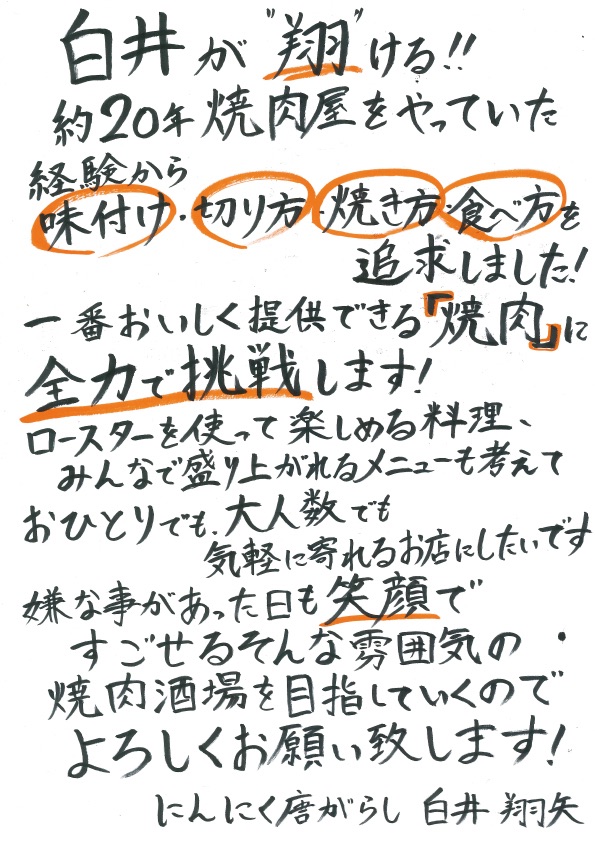 白井が"翔"ける!!
約20年焼肉屋をやっていた
経験から
味付け・切り方・焼き方・食べ方を
追求しました!
一番おいしく提供できる『焼肉』に
全力で挑戦します!
ロースターを使って楽しめる料理、
みんなで盛り上がれるメニューも考えて
おひとりでも、大人数でも
気軽に寄れるお店にしたいです
嫌な事があった日も笑顔で
すごせるそんな雰囲気の
焼肉酒場を目指していくので
よろしくお願い致します!
にんにく唐がらし 白井 翔矢